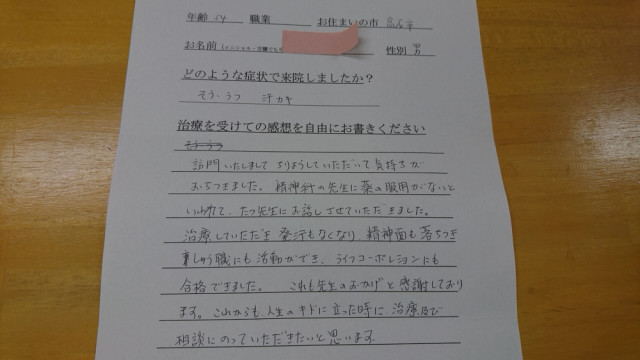 年齢 54 職業 お住まいの市 高石市
お名前 性別 男
どのような症状で来院しましたか？
そう・うつ 汗カキ
治療を受けての感想を自由にお書きください
そう・うつ
訪問いたしまして ちりょうしていただいて気持ちが
おちつきました。精神科の先生に薬の服用がないと
いわれて、たつ先生にお話しさせていただきました。
治療していただき 発汗もなくなり、精神面も落ちつき
しゅう職にも活動ができ、ライフコーポレションにも
合格できました。 これも先生のおかげと感謝しており
ます。これからも、人生のキドに立った時に、治療及び
相談にのっていただきたいと思います。